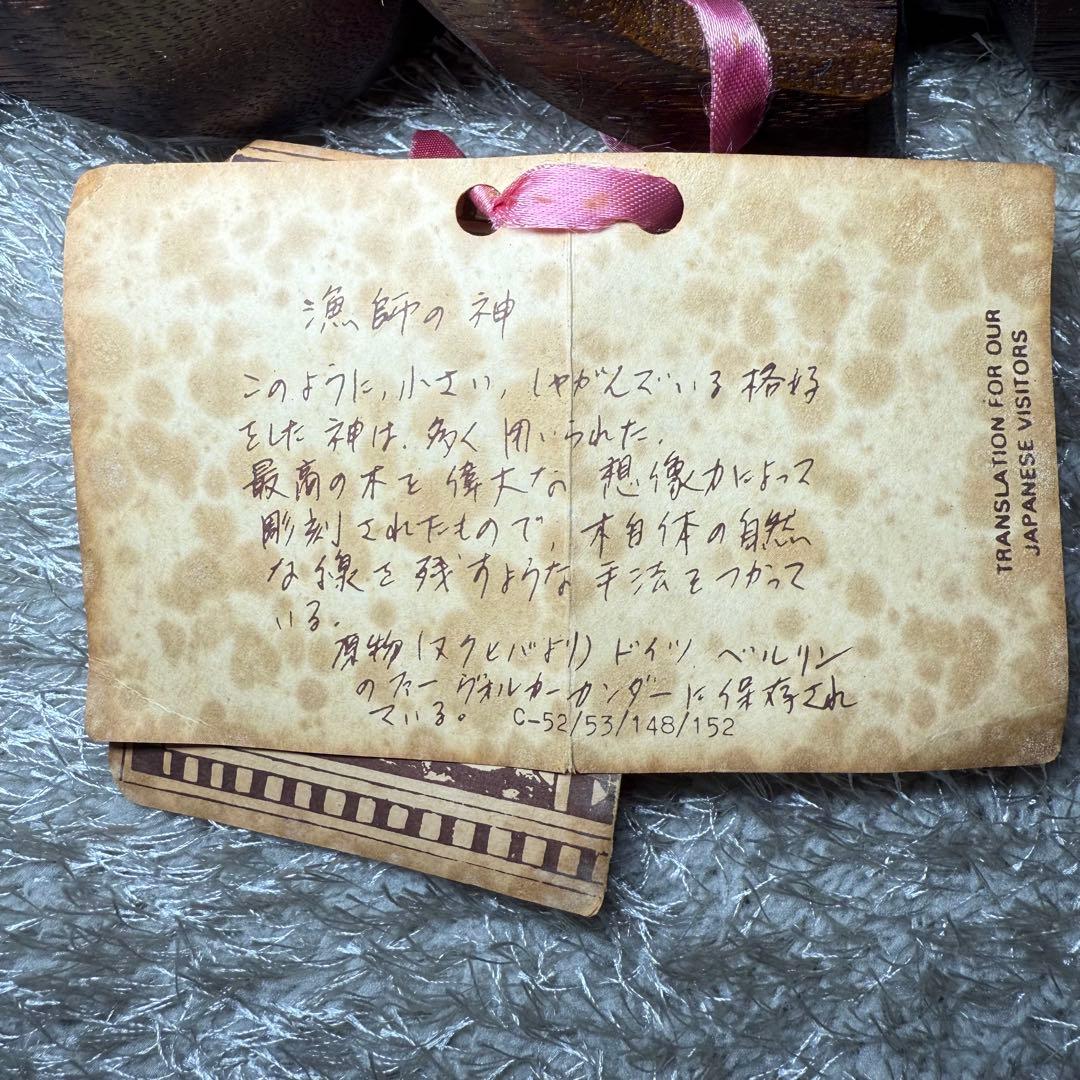 漁師の神
このように,小さい,しゃがんでいる格好
をした神は、多く用いられた.
最高の木を偉大な想像力によって
彫刻されたもので,木自体の自然
な線を残すような手法をつかって
いる.
原物(ヌクヒバより)ドイツ,ベルリン
のファーヴォルカーカンダーに保存され
ている。 C-52/53/148/152
TRANSLATION FOR OUR
JAPANESE VISITORS